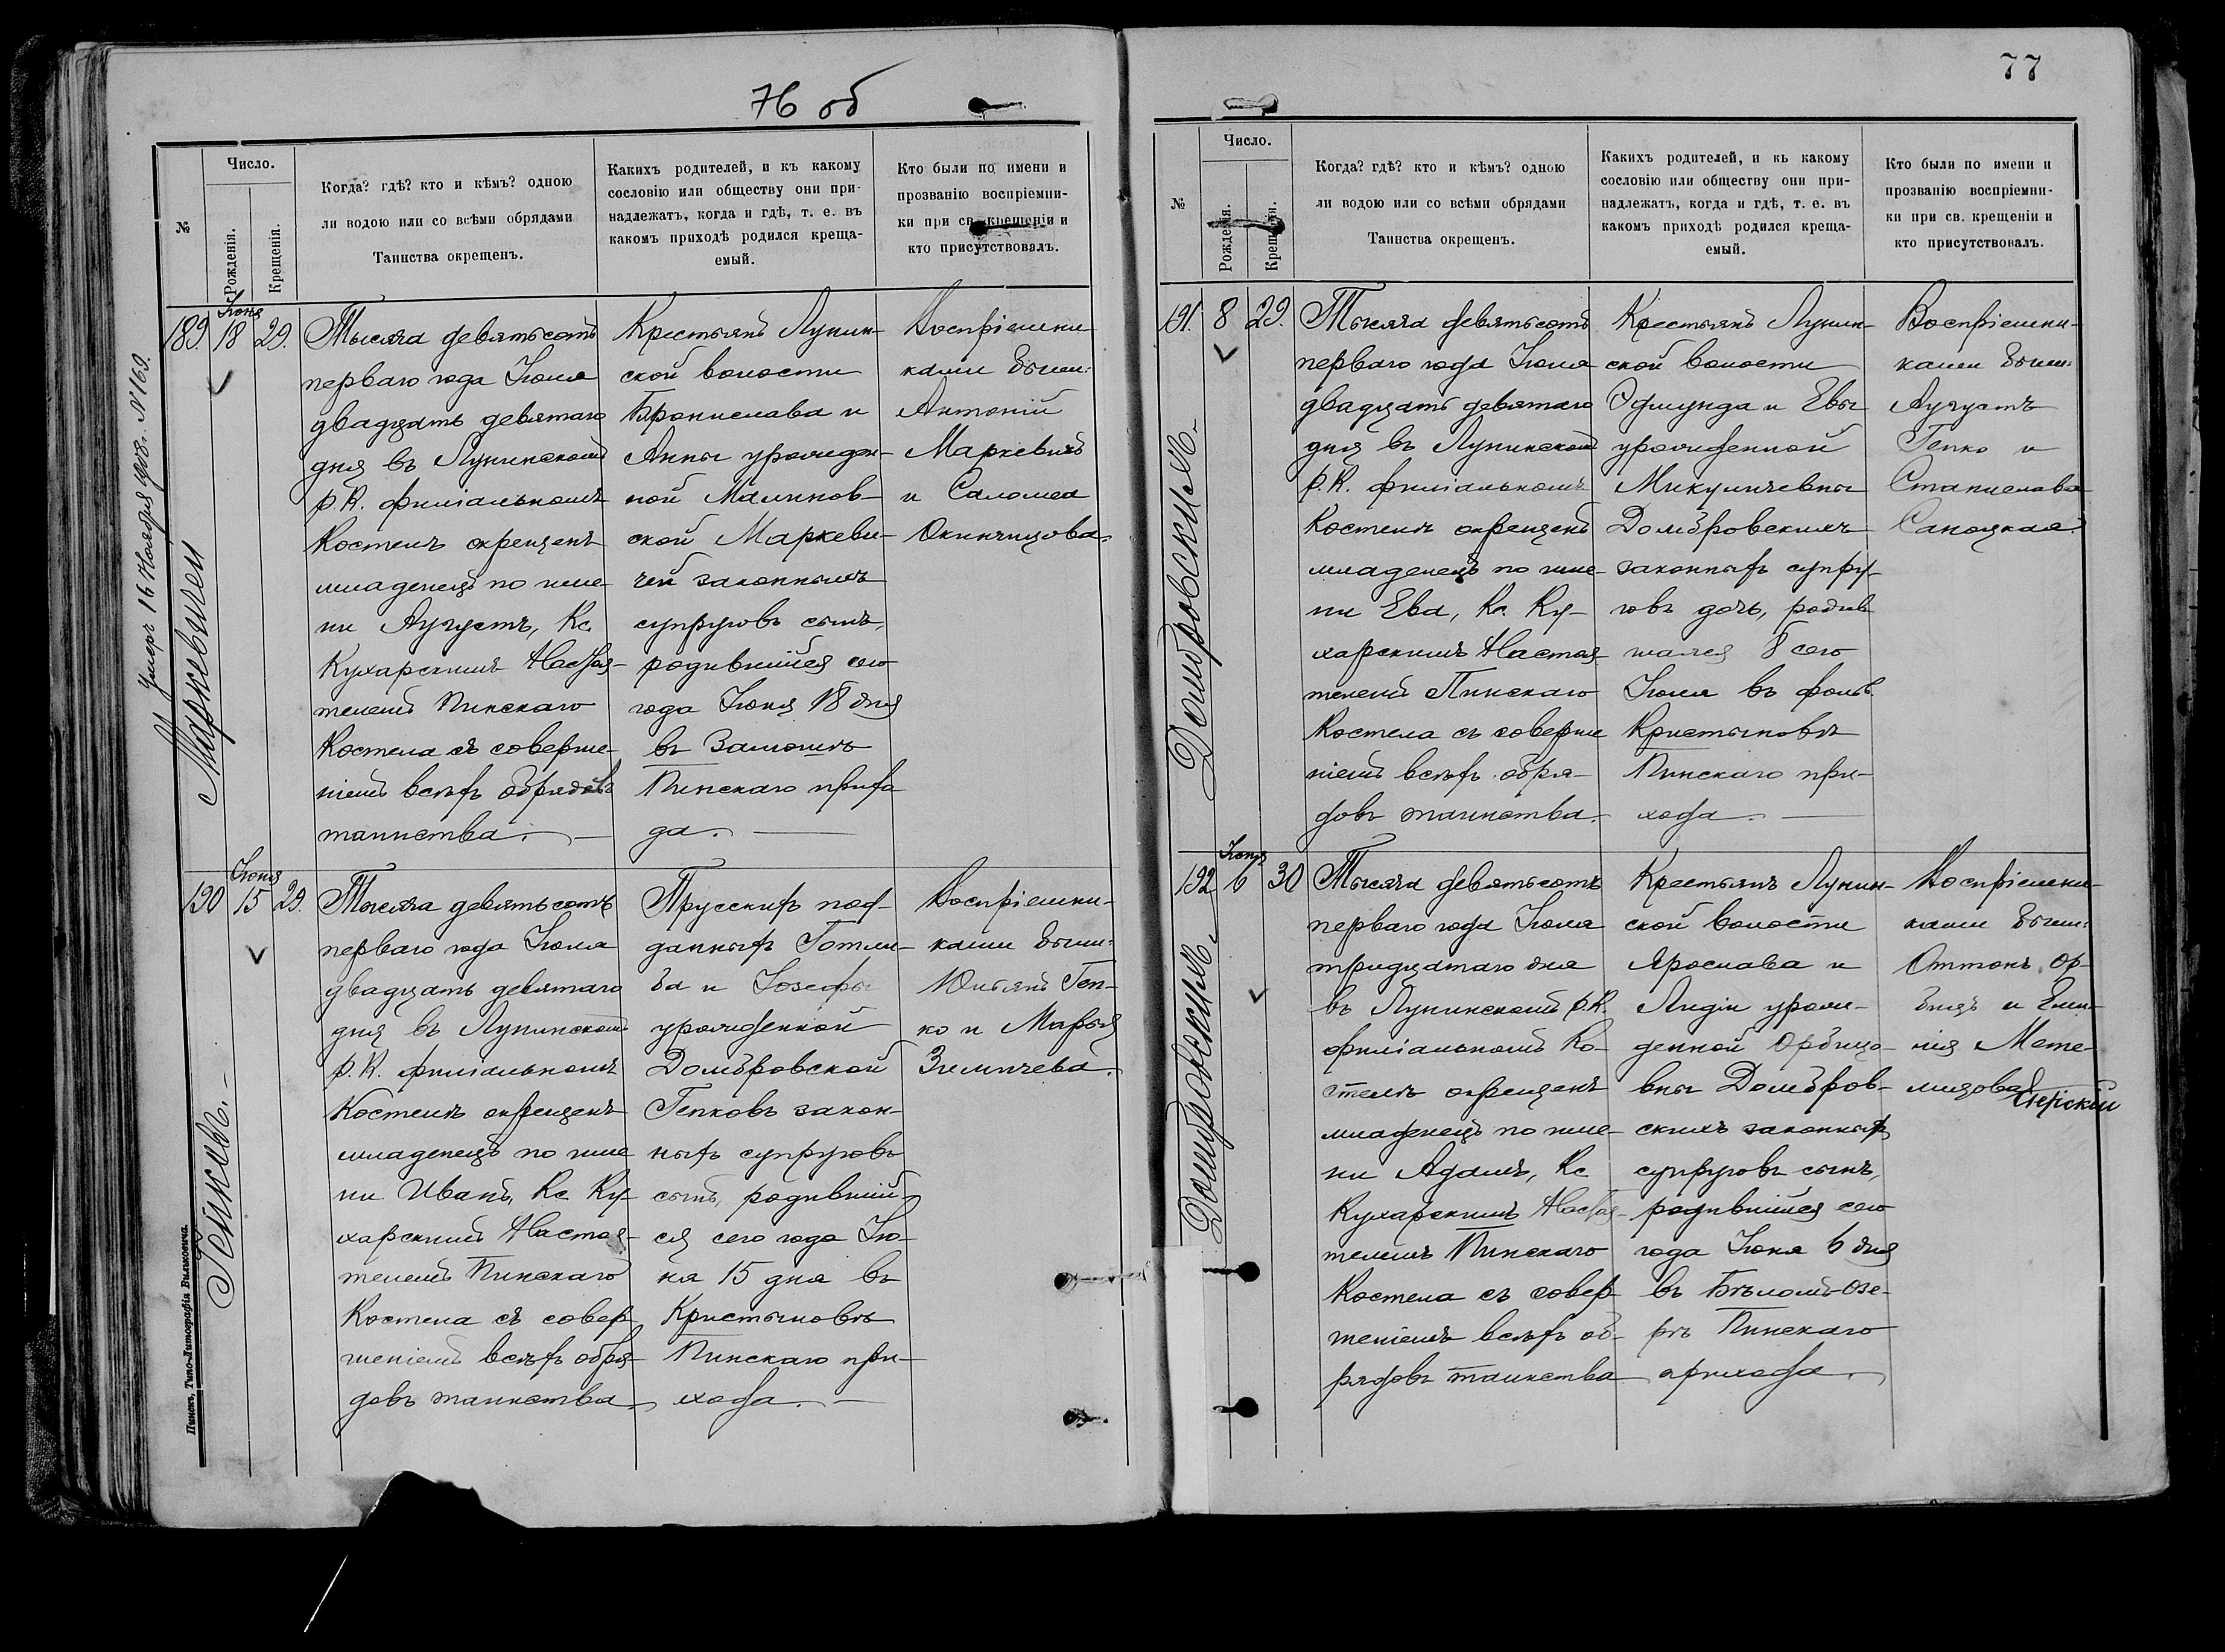 76 об
№
Число.
Рожденія.
Крещенія.
Когда? гдѣ? кто и кѣмъ? одною
ли водою или со всѣми обрядами
Таинства окрещенъ.
Какихъ родителей, и къ какому
сословію или обществу они при-
надлежатъ, когда и гдѣ, т. е. въ
какомъ приходѣ родился креща-
емый.
Кто были по имени и
прозванію воспріемни-
ки при св. крещеніи и
кто присутствовалъ.
Умеръ 16 Ноября 1908 г. № 169.
Маркевичъ
189. Іюня 18 29.
Тысяча девятьсотъ
перваго года Іюля
двадцать девятаго
дня въ Лунинскомъ
р.К. филіальномъ
Костелѣ окрещенъ
младенецъ по име-
ни Августъ, Кс.
Кухарскимъ Настоя-
телемъ Пинскаго
Костела съ соверше-
ніемъ всѣхъ обрядовъ
таинства.
Крестьянъ Лунин-
ской волости
Бронислава и
Анны урожден-
ной Малинов-
ской Маркеви-
чей законныхъ
супруговъ сынъ,
родившійся сего
года Іюня 18 дня
въ Залюшѣ
Пинскаго прихо
да.
Воспріемни
ками были:
Антоній
Маркевичъ
и Саломея
Окинчицова.
Генко.
190 Іюня 15 29.
Тысяча девятьсотъ
перваго года Іюля
двадцать девятаго
дня въ Лунинскомъ
р.К. филіальномъ
Костелѣ окрещенъ
младенецъ по име
ни Иванъ, Кс. Ку-
харскимъ Настоя-
телемъ Пинскаго
Костела съ совер
шеніемъ всѣхъ обря-
довъ таинства
Прусскихъ под-
данныхъ Готли-
ба и Іозефы
урожденной
Домбровской
Генковъ закон-
ныхъ супруговъ
сынъ, родившій-
ся сего года Ію-
ня 15 дня въ
Кристыновѣ
Пинскаго при-
хода.
Воспріемни-
ками были:
Юліянъ Ген-
ко и Марья
Зиличева.
Пинскъ, Типо-Литографія Вильковича.
77
№
Число.
Рожденія.
Крещенія.
Когда? гдѣ? кто и кѣмъ? одною
ли водою или со всѣми обрядами
Таинства окрещенъ.
Какихъ родителей, и къ какому
сословію или обществу они при-
надлежатъ, когда и гдѣ, т. е. въ
какомъ приходѣ родился креща-
емый.
Кто были по имени и
прозванію воспріемни-
ки при св. крещеніи и
кто присутствовалъ.
Домбровскихъ.
191. 8 29.
Тысяча девятьсотъ
перваго года Іюля
двадцать девятаго
дня въ Лунинскомъ
р.К. филіальномъ
Костелѣ окрещенъ
младенецъ по име-
ни Ева, Кс. Ку-
харскимъ Настоя-
телемъ Пинскаго
Костела съ соверше
ніемъ всѣхъ обря-
довъ таинства.
Крестьянъ Лунин-
ской волости
Эдмунда и Евы
урожденной
Микуличевны
Домбровскихъ
законныхъ супру-
говъ дочь, родив
шаяся 8 сего
Іюля въ фольв.
Кристыновѣ
Пинскаго при-
хода.
Воспріемни-
ками были:
Августъ
Генко и
Станислава
Саноцкая.
Домбровскихъ.
192 Іюня 6 30
Тысяча девятьсотъ
перваго года Іюля
тридцатаго дня
въ Лунинскомъ р.К.
филіальномъ Ко-
стелѣ окрещенъ
младенецъ по име-
ни Адамъ, Кс
Кухарскимъ Настоя-
телемъ Пинскаго
Костела съ совер-
шеніемъ всѣхъ об-
рядовъ таинства
Крестьянъ Лунин-
ской волости
Ярослава и
Лидіи урож-
денной Орбицо-
вны Домбров-
скихъ законныхъ
супруговъ сынъ,
родившійся сего
года Іюня 6 дня
въ Бѣломъ-озе-
рѣ Пинскаго
прихода.
Воспріемни-
ками были:
Оттонъ Ор-
бицъ и Эми-
лія Мате-